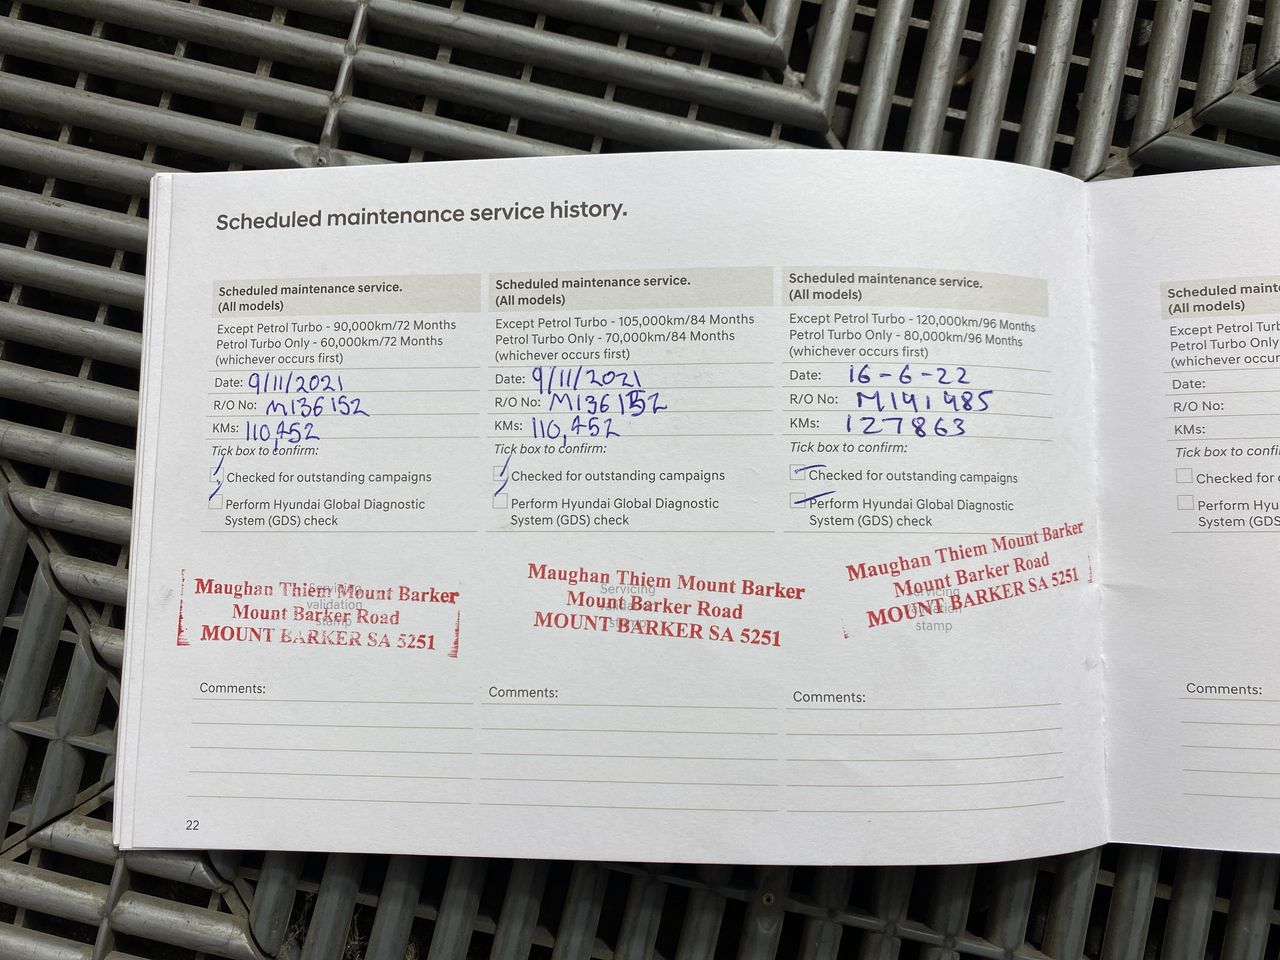 Scheduled maintenance service history.
Scheduled maintenance service.
(All models)
Except Petrol Turbo - 90,000km/72 Months
Petrol Turbo Only - 60,000km/72 Months
(whichever occurs first)
Date: 9/11/2021
R/O No: M136152
KMs: 110,452
Tick box to confirm:
Checked for outstanding campaigns
Perform Hyundai Global Diagnostic
System (GDS) check
Servicing
validation
stamp
Maughan Thiem Mount Barker
Mount Barker Road
MOUNT BARKER SA 5251
Comments:
Scheduled maintenance service.
(All models)
Except Petrol Turbo - 105,000km/84 Months
Petrol Turbo Only - 70,000km/84 Months
(whichever occurs first)
Date: 9/11/2021
R/O No: M136152
KMs: 110,452
Tick box to confirm:
Checked for outstanding campaigns
Perform Hyundai Global Diagnostic
System (GDS) check
Servicing
validation
stamp
Maughan Thiem Mount Barker
Mount Barker Road
MOUNT BARKER SA 5251
Comments:
Scheduled maintenance service.
(All models)
Except Petrol Turbo - 120,000km/96 Months
Petrol Turbo Only - 80,000km/96 Months
(whichever occurs first)
Date: 16-6-22
R/O No: M141485
KMs: 127863
Tick box to confirm:
Checked for outstanding campaigns
Perform Hyundai Global Diagnostic
System (GDS) check
Servicing
validation
stamp
Maughan Thiem Mount Barker
Mount Barker Road
MOUNT BARKER SA 5251
Comments:
22
Scheduled
(All models)
Except Petrol
Petrol Turbo Only
(whichever
Date:
R/O No:
KMs:
Tick box to
Checked for
Perform
System (GDS)
Comments: